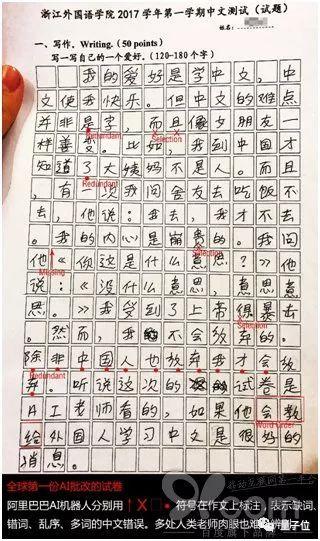 浙江外国语学院2017学年第一学期中文测试（试题）
一、写作。Writing.（50 points）
写一写自己的一个爱好。（120-180个字）
我的爱好是学中文，中
文使我快乐。但中文的难点
并非是字，而且像女朋友一
Redundant
样善变。比如，我到中国才
知道了大姨妈不是人。而且
Redundant
，有一次我问舍友去吃饭不
去，他说：我去，我才不去
Selection
。我的内心是崩贵的。我问
他《你这是什么意思？》他
Missing
说：《没什么意思，意思意
思。》我受到了上帝很暴击
Selection
。然而，我不会放弃的。
除非中国人也放弃我才会放
Redundant
弃。听说这次的试卷是
AI老师看的，如果他会教
给外国人学习中文是很好的
Word Order
消息。
全球第一份AI批改的试卷
阿里巴巴AI机器人分别用 ↑ X □ • 符号在作文上标注，表示缺词、
错词、乱序、多词的中文错误。多处人类老师肉眼也难辨别
量子位